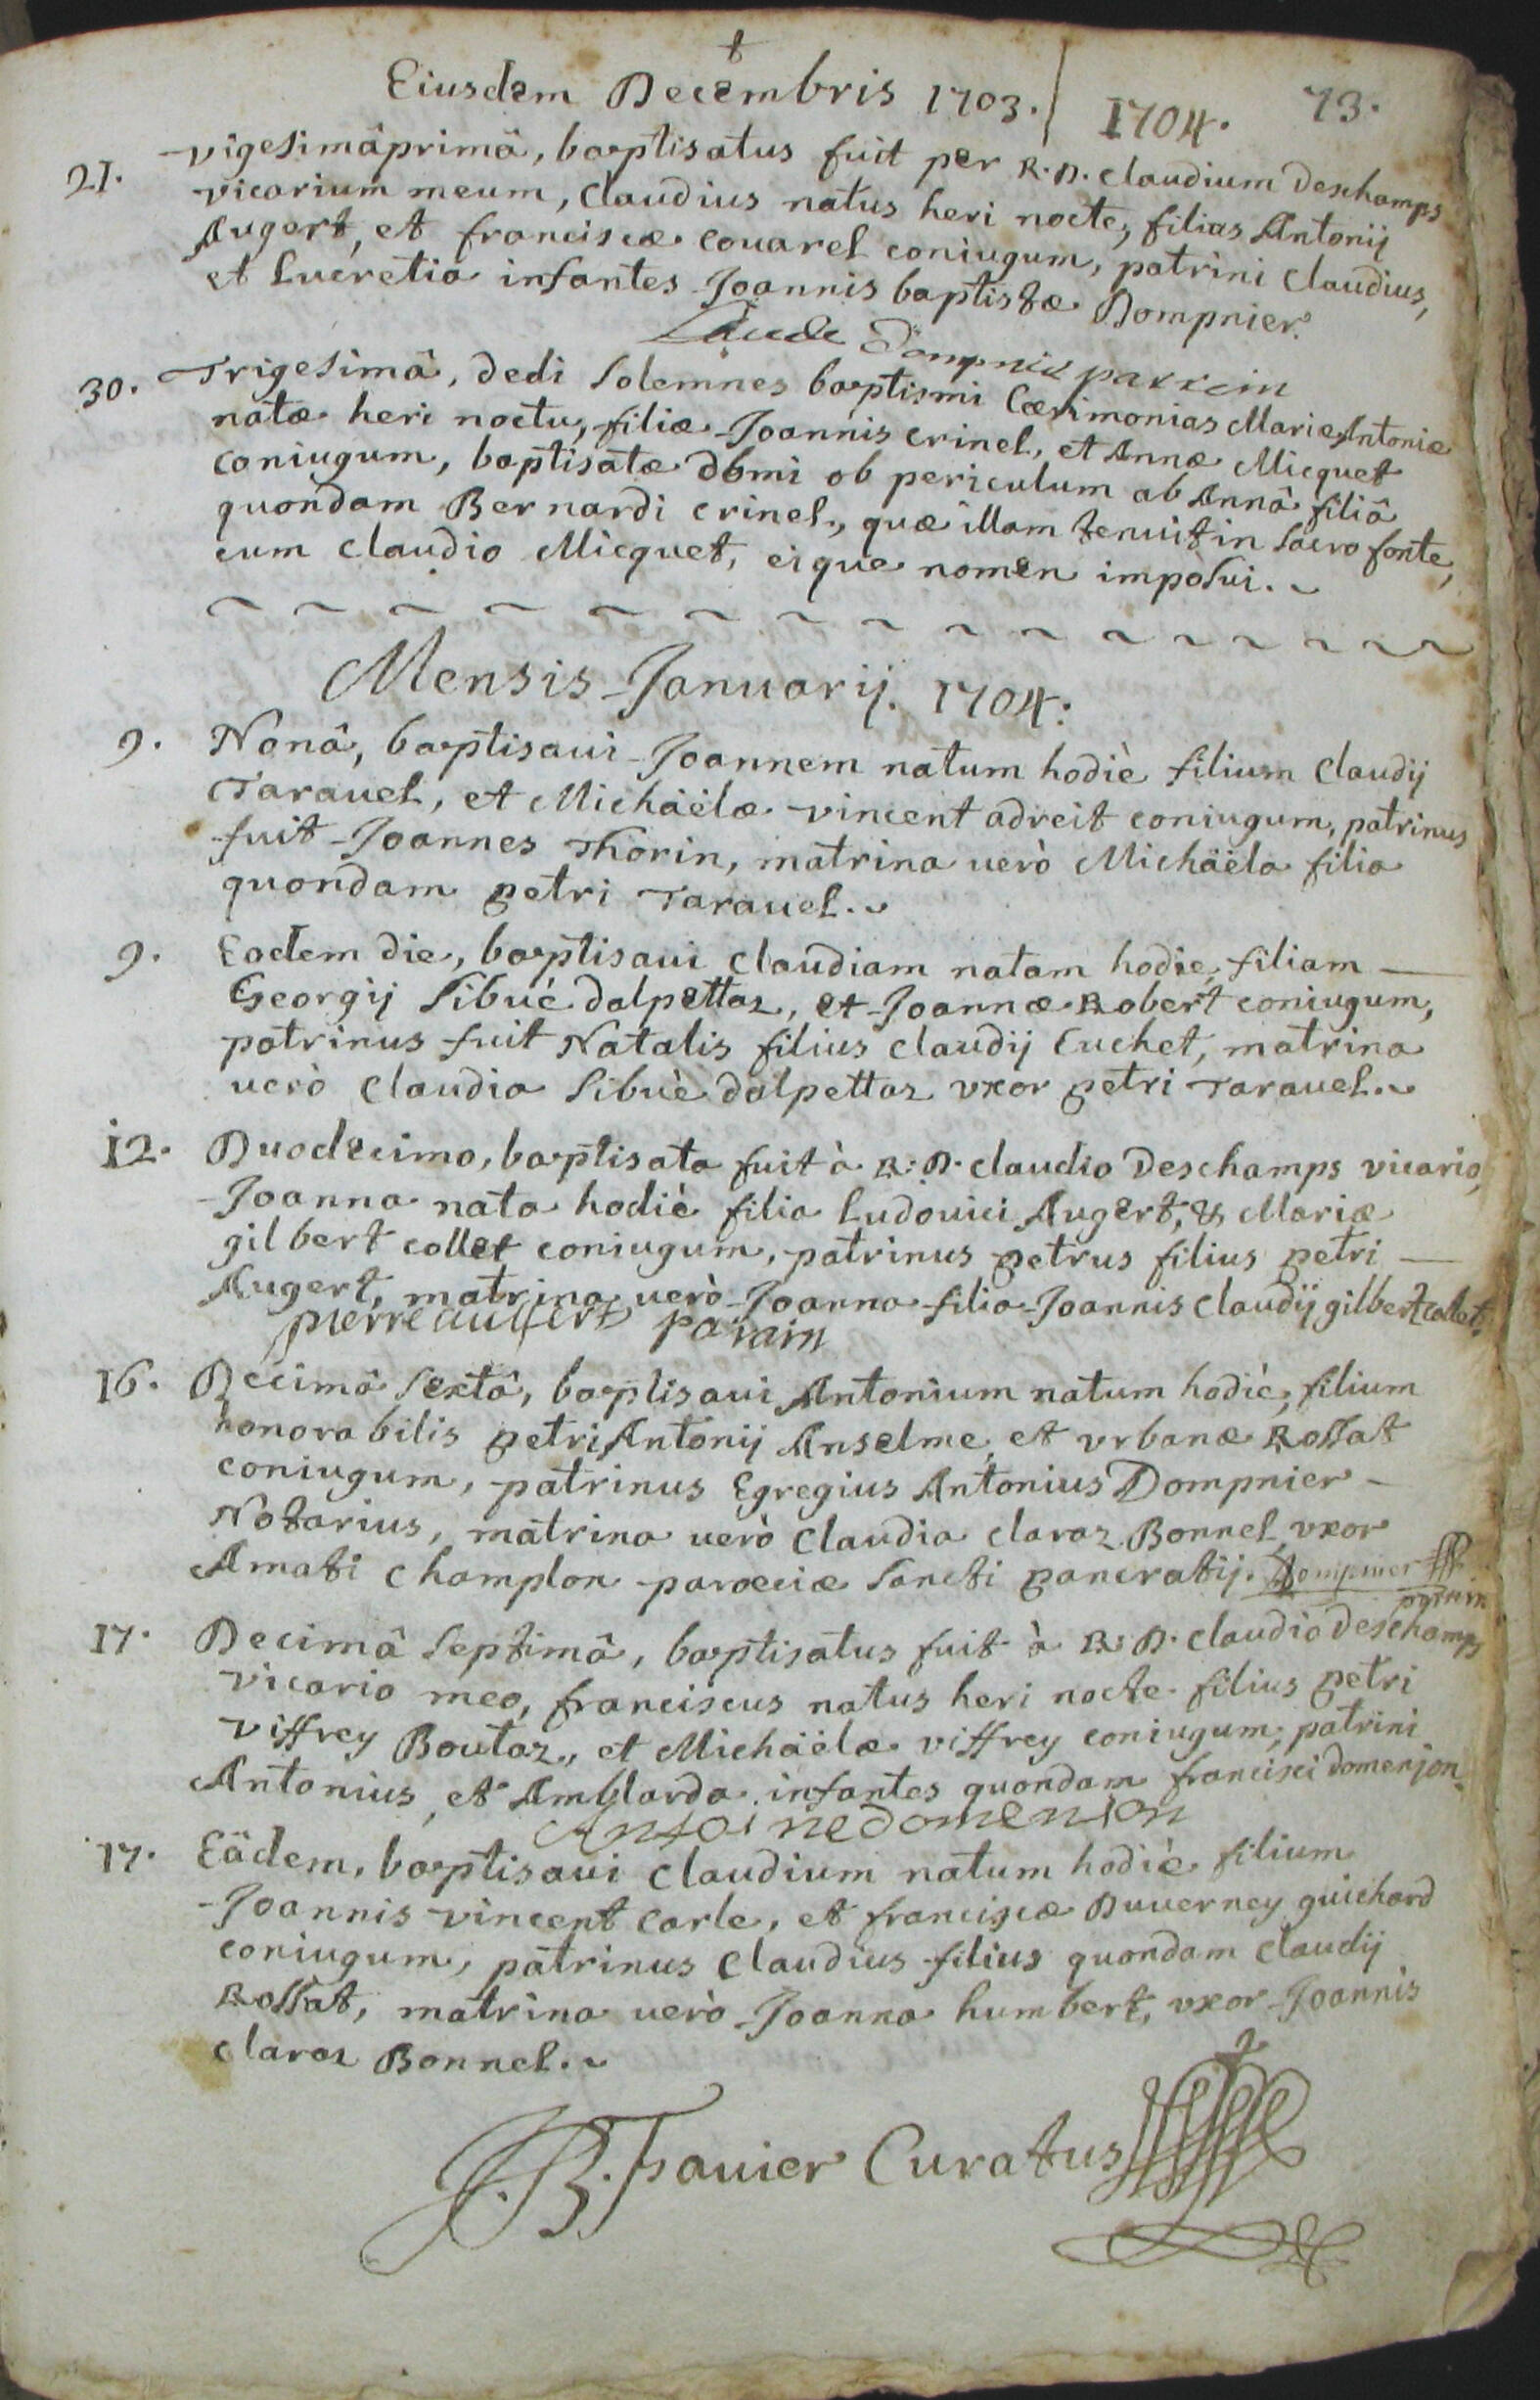 Eiusdem Decembris 1703. | 1704. 73.
21. vigesimâprimâ, baptisatus fuit per R.D. claudium Deschamps
vicarium meum, Claudius natus heri nocte, filias Antonij
Augert, et franciscæ couarel coniugum, patrini Claudius,
et Lucretia infantes Joannis baptistæ Dompnier.
Claude Dompnier parrein
30. Trigesimâ, dedi solemnes baptismi Cærimonias Mariæ Antoniæ
natæ heri noctu, filiæ Joannis crinel, et Annæ Micquet
coniugum, baptisatæ domi ob periculum ab Annâ filiâ
quondam Bernardi crinel, quæ illam tenuit in sacro fonte,
cum claudio Micquet, eique nomen imposui. ~
Mensis Januarij. 1704:
9. Nonâ, baptisaui Joannem natum hodiè filium claudij
Tarauel, et Michäelæ vincent adreit coniugum, patrinus
fuit Joannes Thorin, matrina uerò Michäela filia
quondam petri Tarauel. ~
9. Eadem die, baptisaui claudiam natam hodie, filiam —
Georgij Sibué dalpettaz, et Joannæ Robert coniugum,
patrinus fuit Natalis filius claudij Cuchet, matrina
uerò Claudia Sibuè dalpettaz vxor petri Tarauel. ~
12. Duodecima, baptisata fuit à R: D. claudio Deschamps vicario,
Joanna nata hodiè filia Ludouici Augert, & Mariæ
gilbert collet coniugum, patrinus petrus filius petri —
Augert, matrina uerò Joanna filia Joannis claudij gilbert collet.
pierre augert parain
16. Decimâ sextâ, baptisaui Antonium natum hodiè, filium
honorabilis petri Antonij Anselme, et vrbanæ Rossat
coniugum, patrinus Egregius Antonius Dompnier -
Notarius, matrina uerò Claudia claraz Bonnel vxor
Amati champlon paroeciæ sancti pancratij. Dompnier
parrin
17. Decimâ septimâ, baptisatus fuit à R: D. claudio Deschamps
vicario meo, franciscus natus heri nocte filius petri
viffrey Boutaz, et Michäelæ viffrey coniugum, patrini
Antonius, et Amblarda infantes quondam francisci domenjon.
Antoine domenion
17. Eädem, baptisaui claudium natum hodiè filium
Joannis vincent carle, et franciscæ Duuerney guichard
coniugum, patrinus Claudius filius quondam claudij
Rossat, matrina uerò Joanna humbert, vxor Joannis
claraz Bonnel. ~
J.B. Tauier Curatus